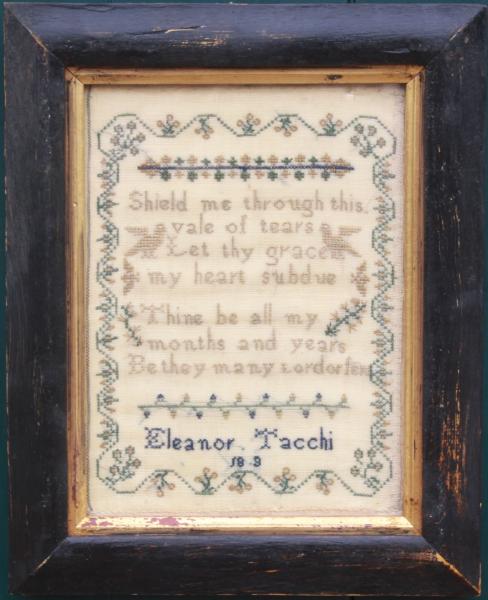 Shield me through this
vale of tears
Let thy grace
my heart subdue
Thine be all my
months and years
Be they many Lord or few
Eleanor Tacchi